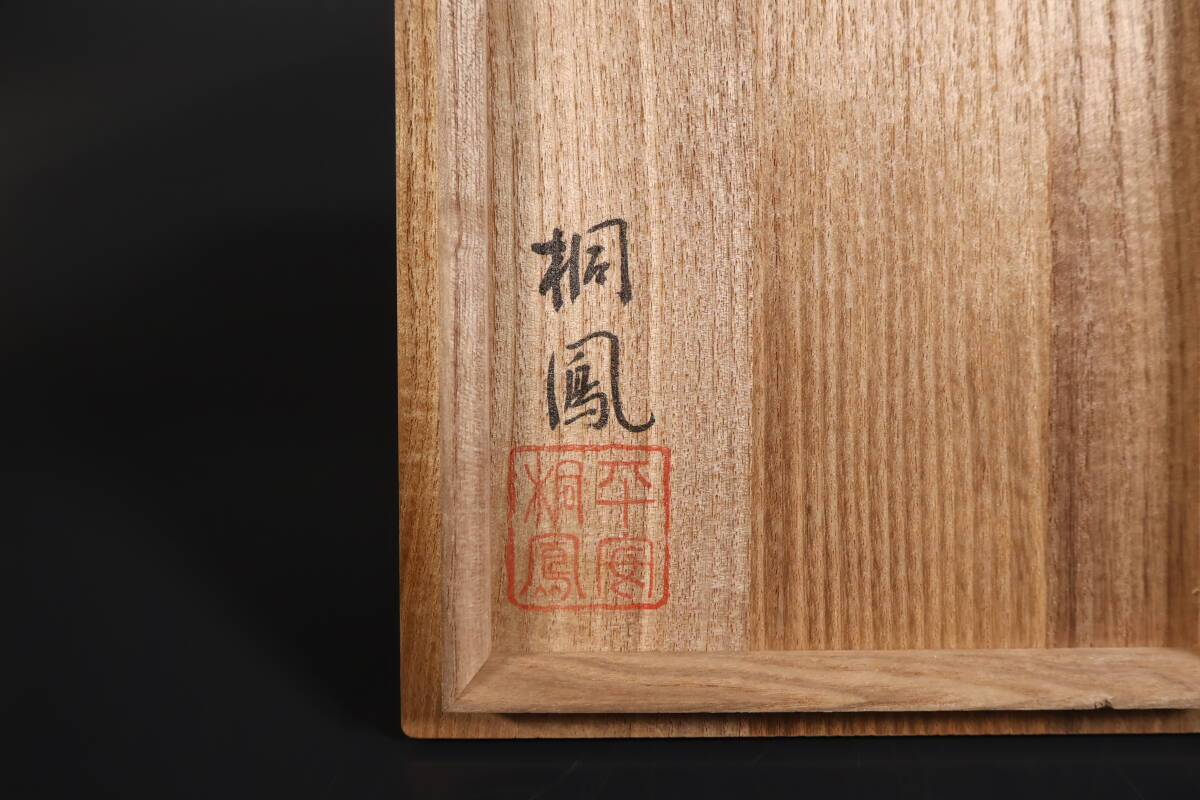 桐鳳
平安
桐鳳